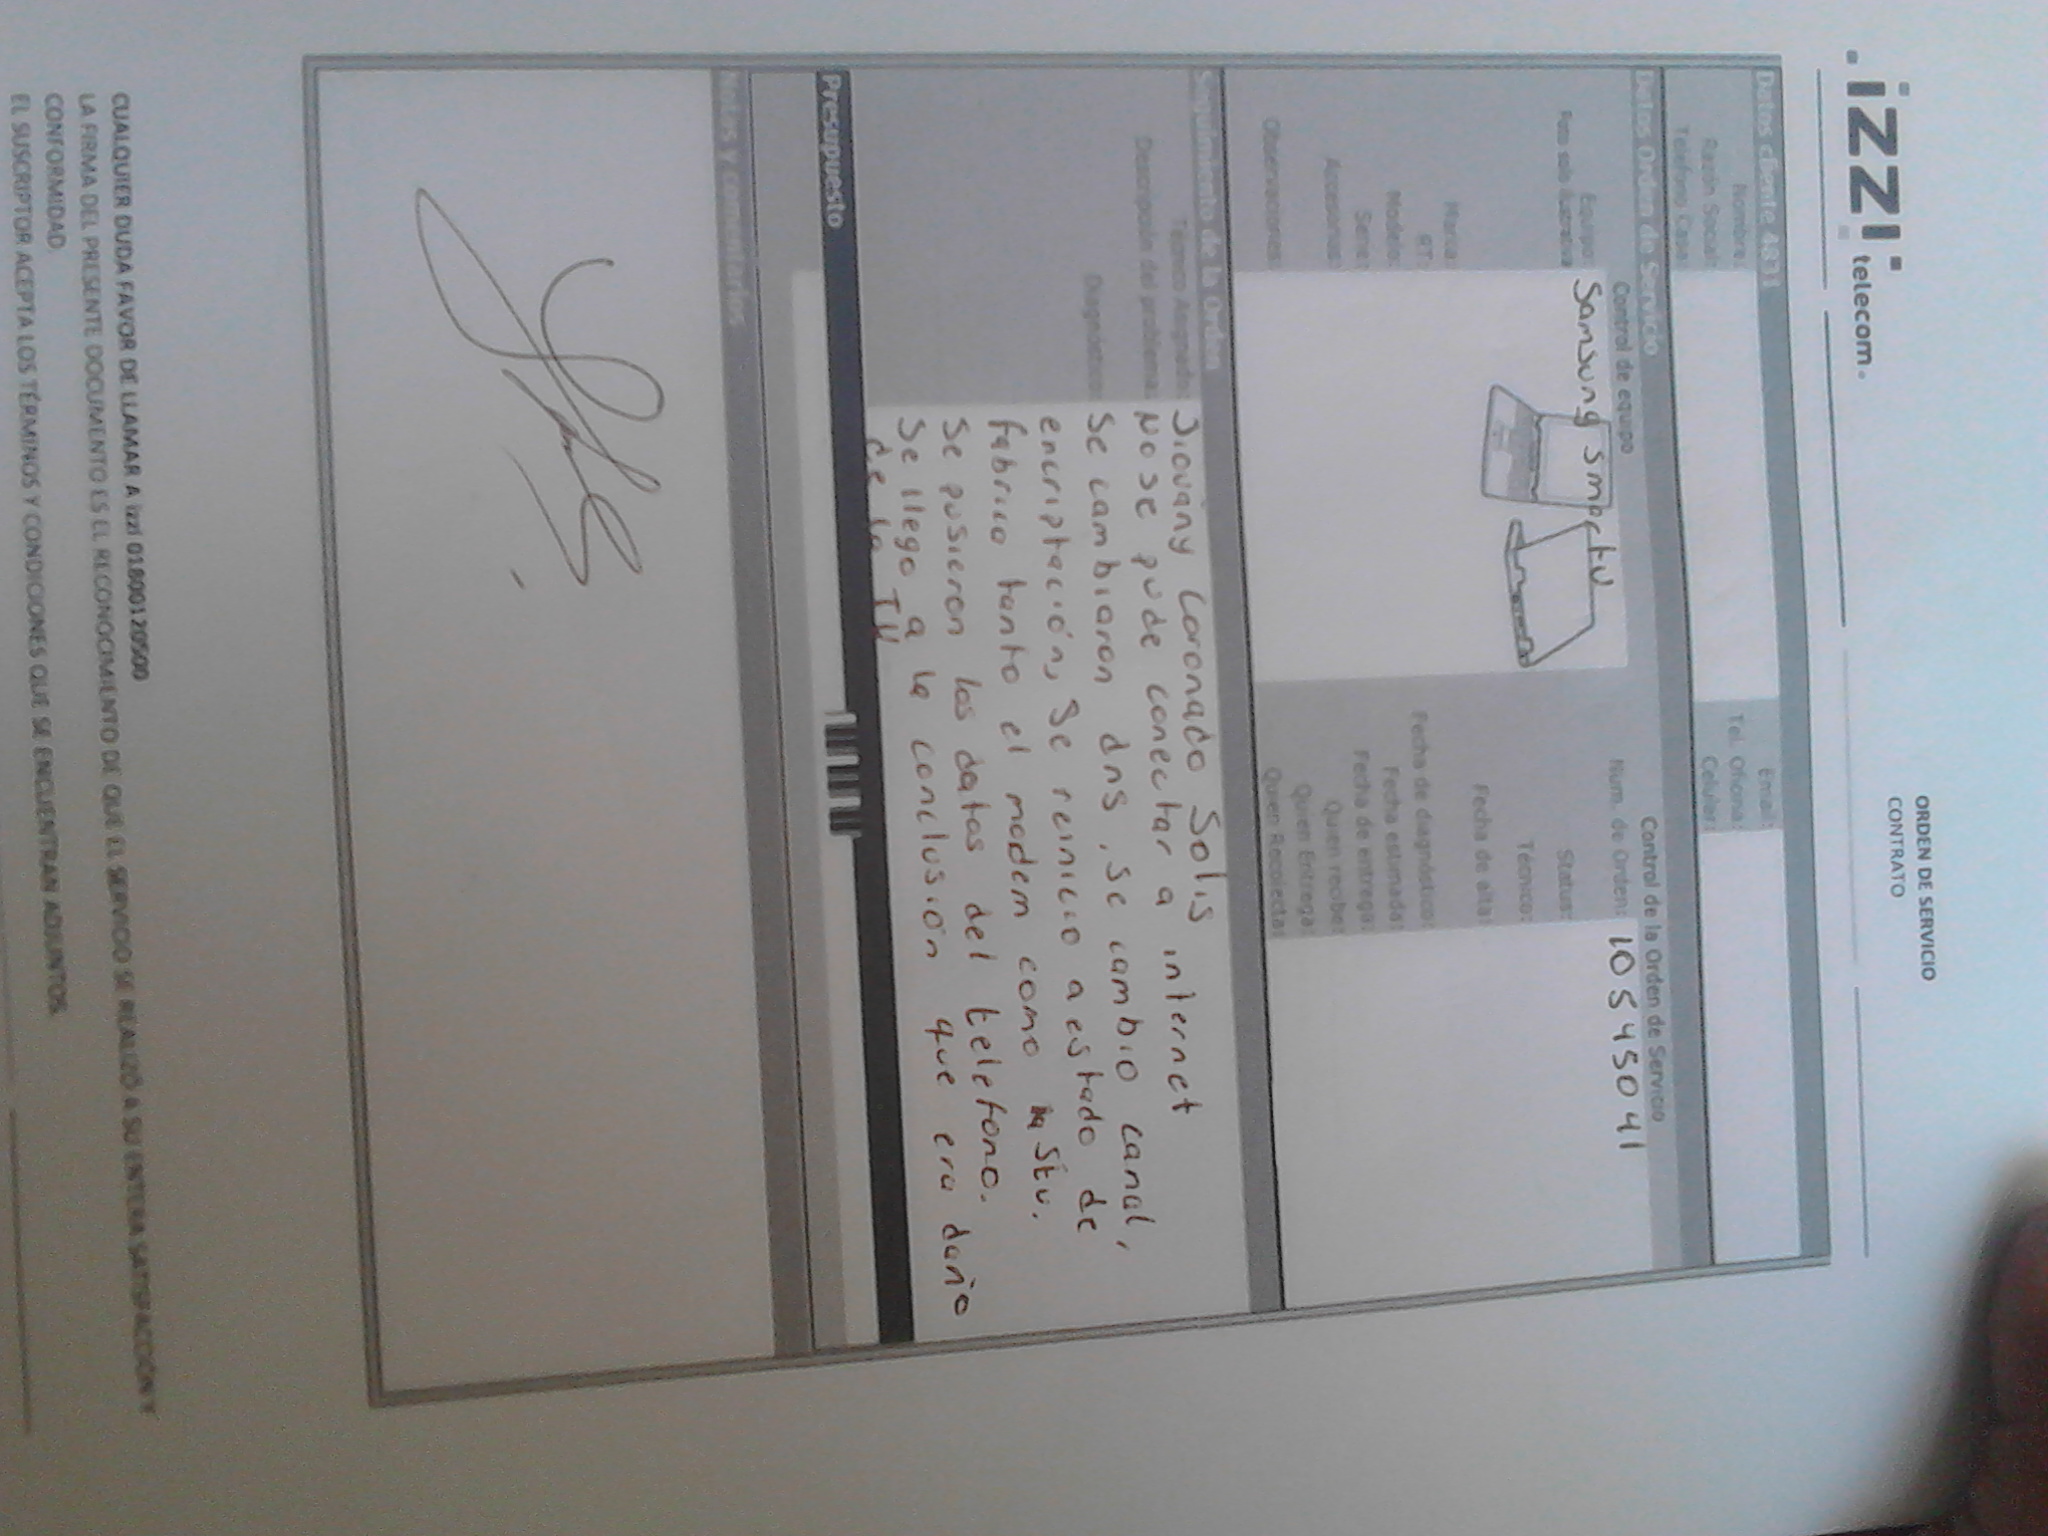 izzi telecom
ORDEN DE SERVICIO
CONTRATO
Datos cliente 4831
Nombre:
Email:
Razón Social:
Tel. Oficina:
Telefono Casa:
Celular:
Datos Orden de Servicio
Control de equipo
Control de la Orden de Servicio
Equipo: Samsung smartv
Num. de Orden: 10545041
Foto solo ilustrativa
Status:
Técnico:
Fecha de alta:
Marca:
Modelo:
Serie:
Accesorios:
Observaciones:
Fecha de diagnóstico:
Fecha estimada:
Fecha de entrega:
Quien recibe:
Quien Entrega:
Quien Recolecta:
Seguimiento de la Orden
Técnico Asignado: Jiovany Coronado Solis
Descripción del problema: No se pude conectar a internet
Diagnóstico: Se cambiaron dns, se cambio canal,
encriptación, Se reinicio a estado de
fabrica tanto el modem como la Stv.
Se pusieron los datos del telefono.
Se llego a la conclusión que era daño
de la TV
Presupuesto
Notas y comentarios
CUALQUIER DUDA FAVOR DE LLAMAR A izzi 018001205000
LA FIRMA DEL PRESENTE DOCUMENTO ES EL RECONOCIMIENTO DE QUE EL SERVICIO SE REALIZÓ A SU ENTERA SATISFACCIÓN Y
CONFORMIDAD
EL SUSCRIPTOR ACEPTA LOS TÉRMINOS Y CONDICIONES QUE SE ENCUENTRAN ADJUNTOS